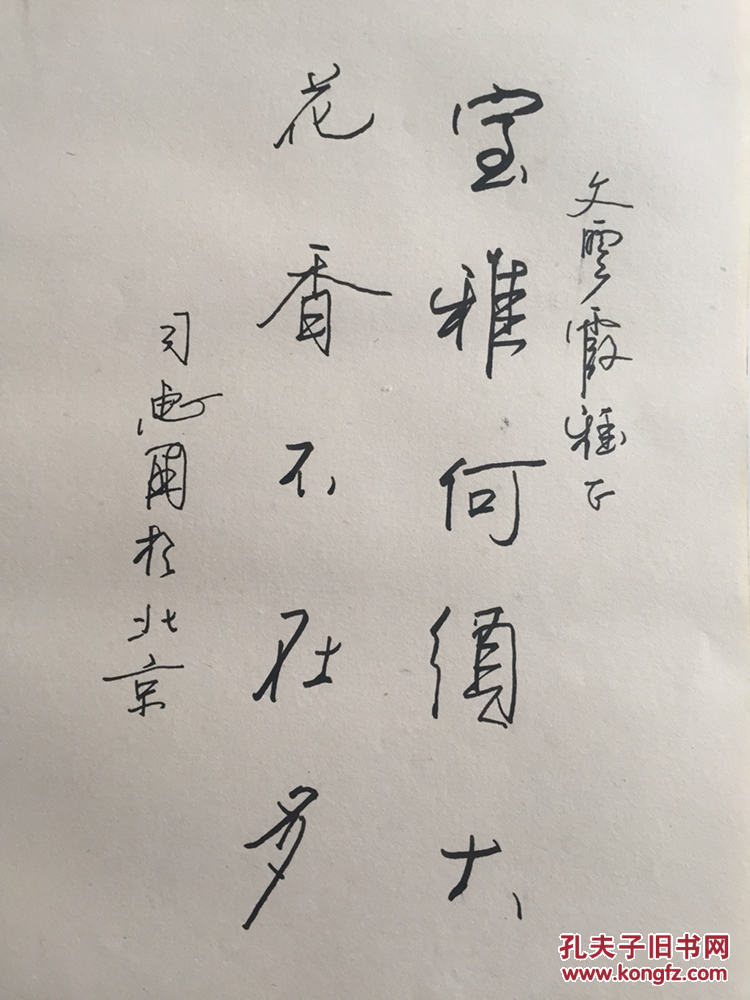 文雲霞雅正
室雅何須大
花香不在多
司於北京
孔夫子旧书网
www.kongfz.com